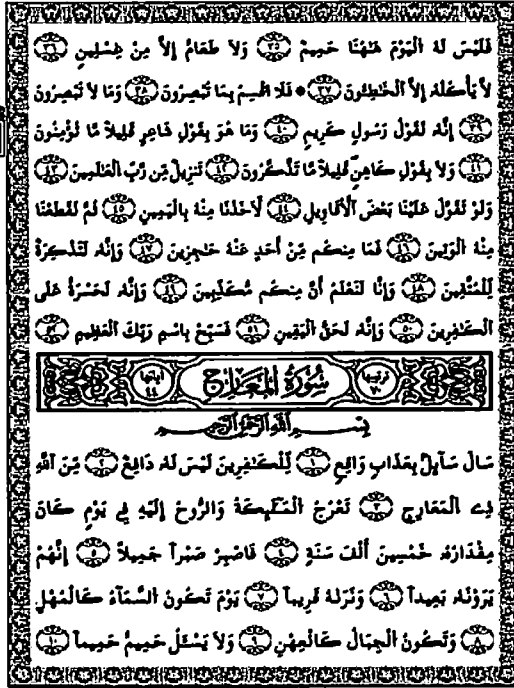 فَلَيْسَ لَهُ الْيَوْمَ هَٰهُنَا حَمِيمٌ ٣٥ وَلَا طَعَامٌ إِلَّا مِنْ غِسْلِينٍ ٣٦
لَّا يَأْكُلُهُۥ إِلَّا الْخَٰطِئُونَ ٣٧ * فَلَا أُقْسِمُ بِمَا تُبْصِرُونَ ٣٨ وَمَا لَا تُبْصِرُونَ
٣٩ إِنَّهُۥ لَقَوْلُ رَسُولٍ كَرِيمٍ ٤٠ وَمَا هُوَ بِقَوْلِ شَاعِرٍ قَلِيلًا مَّا تُؤْمِنُونَ
٤١ وَلَا بِقَوْلِ كَاهِنٍ قَلِيلًا مَّا تَذَّكَّرُونَ ٤٢ تَنزِيلٌ مِّن رَّبِّ الْعَٰلَمِينَ ٤٣
وَلَوْ تَقَوَّلَ عَلَيْنَا بَعْضَ الْأَقَاوِيلِ ٤٤ لَأَخَذْنَا مِنْهُ بِالْيَمِينِ ٤٥ ثُمَّ لَقَطَعْنَا
مِنْهُ الْوَتِينَ ٤٦ فَمَا مِنكُم مِّنْ أَحَدٍ عَنْهُ حَٰجِزِينَ ٤٧ وَإِنَّهُۥ لَتَذْكِرَةٌ
لِّلْمُتَّقِينَ ٤٨ وَإِنَّا لَنَعْلَمُ أَنَّ مِنكُم مُّكَذِّبِينَ ٤٩ وَإِنَّهُۥ لَحَسْرَةٌ عَلَى
الْكَٰفِرِينَ ٥٠ وَإِنَّهُۥ لَحَقُّ الْيَقِينِ ٥١ فَسَبِّحْ بِاسْمِ رَبِّكَ الْعَظِيمِ ٥٢
ترتيبها ٧٠ سُورَةُ الْمَعَارِجِ آياتها ٤٤
بِسْمِ اللَّهِ الرَّحْمَٰنِ الرَّحِيمِ
سَالَ سَآئِلٌۢ بِعَذَابٍ وَاقِعٍ ١ لِّلْكَٰفِرِينَ لَيْسَ لَهُۥ دَافِعٌ ٢ مِّنَ اللَّهِ
ذِي الْمَعَارِجِ ٣ تَعْرُجُ الْمَلَٰٓئِكَةُ وَالرُّوحُ إِلَيْهِ فِي يَوْمٍ كَانَ
مِقْدَارُهُۥ خَمْسِينَ أَلْفَ سَنَةٍ ٤ فَاصْبِرْ صَبْرًا جَمِيلًا ٥ إِنَّهُمْ
يَرَوْنَهُۥ بَعِيدًا ٦ وَنَرَىٰهُ قَرِيبًا ٧ يَوْمَ تَكُونُ السَّمَآءُ كَالْمُهْلِ
٨ وَتَكُونُ الْجِبَالُ كَالْعِهْنِ ٩ وَلَا يَسْـَٔلُ حَمِيمٌ حَمِيمًا ١٠